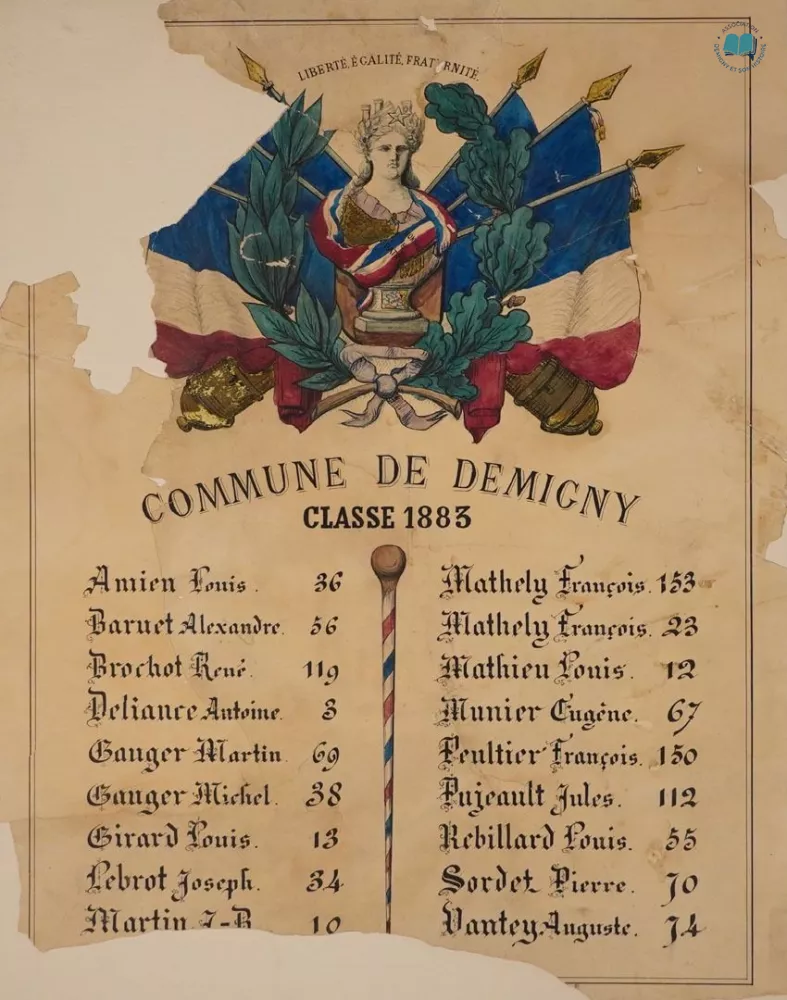 ASSOCIATION
DEMIGNY ET SON HISTOIRE
LIBERTÉ, ÉGALITÉ, FRATERNITÉ.
COMMUNE DE DEMIGNY
CLASSE 1883
Amien Louis. 36
Baruet Alexandre. 56
Brochot René. 119
Deliance Antoine. 3
Ganger Martin. 69
Ganger Michel. 38
Girard Louis. 13
Lebrot Joseph. 34
Martin J-B 10
Mathely François. 153
Mathely François. 23
Mathieu Louis. 12
Munier Eugène. 67
Peultier François. 150
Pujeault Jules. 112
Rebillard Louis. 55
Sordet Pierre. 70
Vantey Auguste. 74